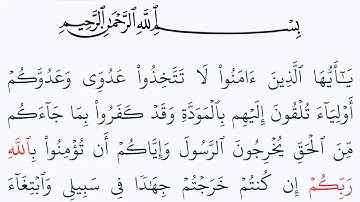 بِسْمِ ٱللَّهِ ٱلرَّحْمَٰنِ ٱلرَّحِيمِ
يَـٰٓأَيُّهَا ٱلَّذِينَ ءَامَنُوا۟ لَا تَتَّخِذُوا۟ عَدُوِّى وَعَدُوَّكُمْ
أَوْلِيَآءَ تُلْقُونَ إِلَيْهِم بِٱلْمَوَدَّةِ وَقَدْ كَفَرُوا۟ بِمَا جَآءَكُم
مِّنَ ٱلْحَقِّ يُخْرِجُونَ ٱلرَّسُولَ وَإِيَّاكُمْ أَن تُؤْمِنُوا۟ بِٱللَّهِ
رَبِّكُمْ إِن كُنتُمْ خَرَجْتُمْ جِهَـٰدًا فِى سَبِيلِى وَٱبْتِغَآءَ